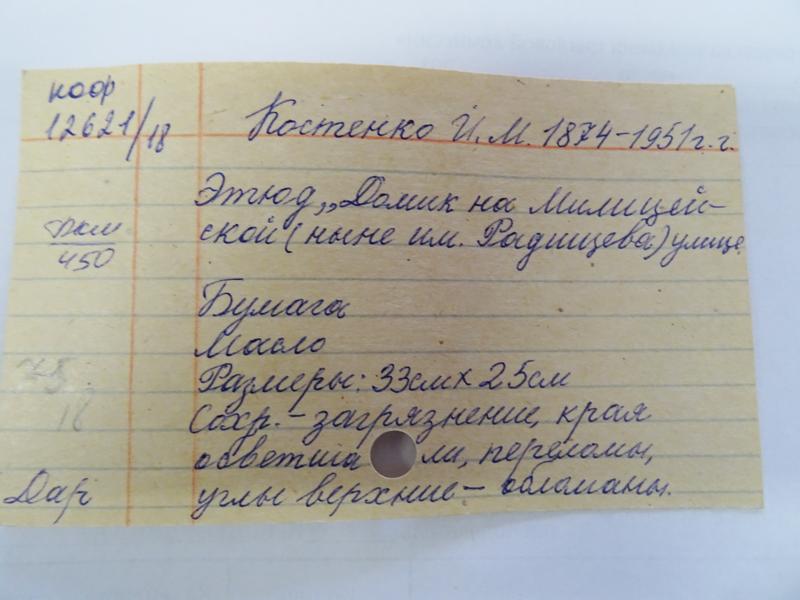 кооф
12621/18
Костенко И.М. 1874-1951г.г.
Этюд „Домик на Милицей-
ской (ныне им. Радищева) улице
450
Бумага
Масло
Размеры: 33см х 25см
18
Сохр. - загрязнение, края
ли, переломы,
Дар
углы верхние - обломаны.